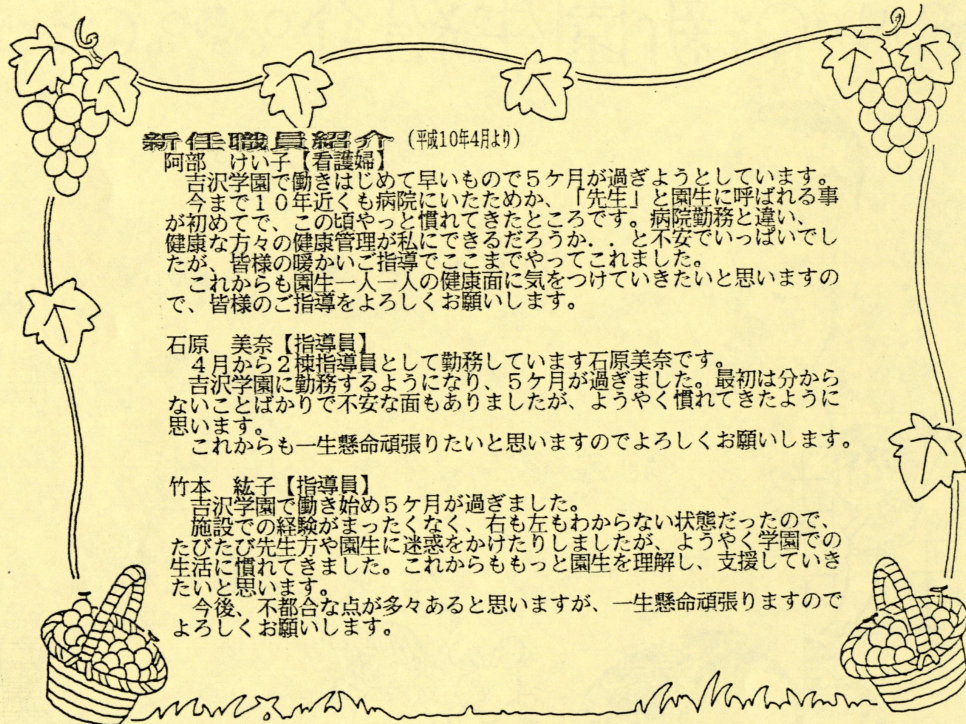 新任職員紹介（平成10年4月より）
阿部　けい子【看護婦】
吉沢学園で働きはじめて早いもので５ケ月が過ぎようとしています。
今まで１０年近くも病院にいたためか、「先生」と園生に呼ばれる事
が初めてで、この頃やっと慣れてきたところです。病院勤務と違い、
健康な方々の健康管理が私にできるだろうか．．と不安でいっぱいでし
たが、皆様の暖かいご指導でここまでやってこれました。
これからも園生一人一人の健康面に気をつけていきたいと思いますの
で、皆様のご指導をよろしくお願いします。
石原　美奈【指導員】
４月から２棟指導員として勤務しています石原美奈です。
吉沢学園に勤務するようになり、５ケ月が過ぎました。最初は分から
ないことばかりで不安な面もありましたが、ようやく慣れてきたように
思います。
これからも一生懸命頑張りたいと思いますのでよろしくお願いします。
竹本　紘子【指導員】
吉沢学園で働き始め５ケ月が過ぎました。
施設での経験がまったくなく、右も左もわからない状態だったので、
たびたび先生方や園生に迷惑をかけたりしましたが、ようやく学園での
生活に慣れてきました。これからももっと園生を理解し、支援していき
たいと思います。
今後、不都合な点が多々あると思いますが、一生懸命頑張りますので
よろしくお願いします。